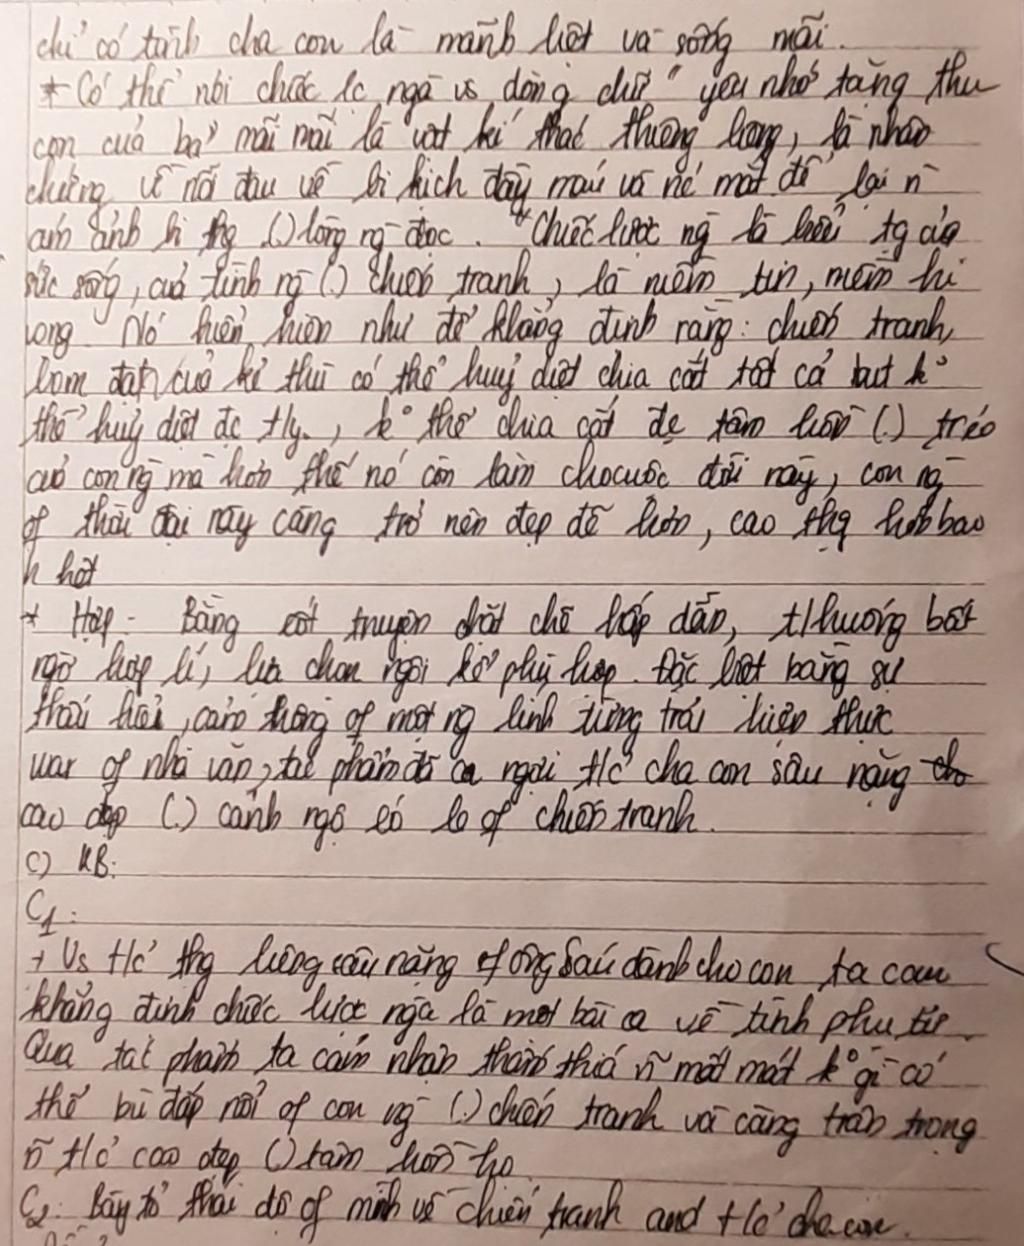 chỉ có tình cha con là mãnh liệt và sống mãi.
* Có thể nói chiếc lc ngà vs dòng chữ " yêu nhớ tặng thu
con của ba" mãi mãi là vật kí thác thiêng liêng, là nhân
chứng về nỗi đau về bi kịch đầy máu và nc mắt để lại n~
ám ảnh bi tg (.) lòng ng đọc. * Chiếc lược ng là biểu tg của
sức sống, của tình ng (.) chiến tranh, là niềm tin, niềm hi
vọng. Nó hiển hiện như để khẳng định rằng: chiến tranh,
bom đạn của kẻ thù có thể huỷ diệt chia cắt tất cả but k°
thể huỷ diệt đc t/y., k° thể chia cắt đc tâm hồn (.) trẻo
của con ng mà hơn thế nó còn làm cho cuộc đời này, con ng
of thời đại này càng trở nên đẹp đẽ hơn, cao thg hơn bao
h hết
* Hợp - Bằng cốt truyện chặt chẽ hấp dẫn, t/huống bất
ngờ hợp lí, lựa chọn ngôi kể phù hợp. Đặc biệt bằng sự
thấu hiểu, cảm thông of một ng lính từng trải hiện thực
war of nhà văn, tác phẩm đã ca ngợi t/c cha con sâu nặng
cao đẹp (.) cảnh ngộ éo le of chiến tranh.
c) KB:
C1:
+ Vs t/c thg liêng sâu nặng of ông Sáu dành cho con ta can
khẳng định chiếc lược ngà là một bài ca về tình phụ tử.
Qua tác phẩm ta cảm nhận thấm thía n~ mất mát k° gì có
thể bù đắp nổi of con ng (.) chiến tranh và càng trân trọng
n~ t/c cao đẹp (.) tâm hồn họ
C2: Bày tỏ thái độ of mình về chiến tranh and t/c cha con.